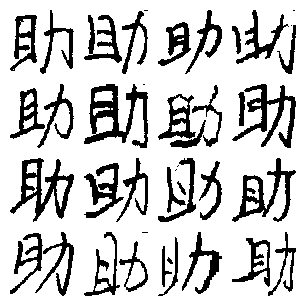 助助助助
助助助助
助助助助
助助助助